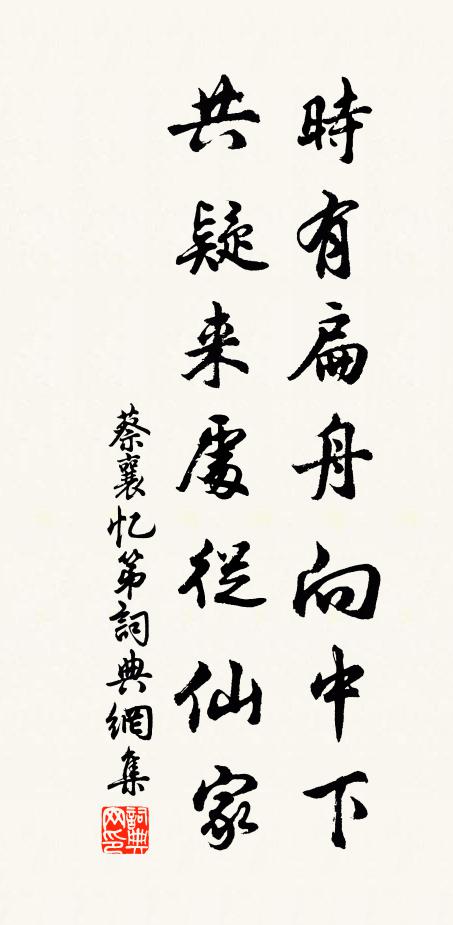 時有扁舟向中下
共疑来處從仙家
蔡襄忆弟詞典網集
詞典网印